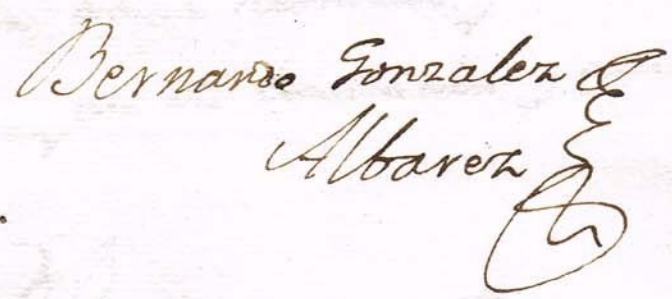 Bernardo Gonzalez
Albarez